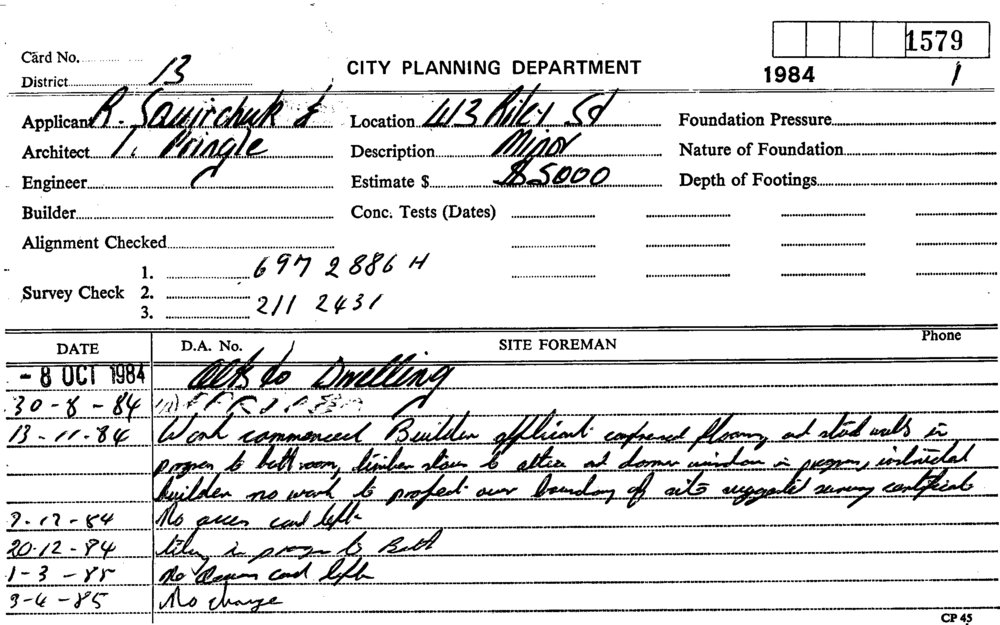 1579
Card No.
District 13
CITY PLANNING DEPARTMENT
1984 1
Applicant R. Sawirchuk &
Location 413 Riley St
Foundation Pressure
Architect T. Pringle
Description Minor
Nature of Foundation
Engineer
Estimate $ $5000
Depth of Footings
Builder
Conc. Tests (Dates)
Alignment Checked
1. 697 2886 H
Survey Check 2.
3. 211 2431
DATE D.A. No. SITE FOREMAN Phone
- 8 OCT 1984 Alts to Dwelling
30-8-84
13-11-84 Work commenced Builder applicant and stud walls in
progress to bathroom, timber stairs to attic and dormer window in progress, instructed
builder no work to project over boundary of site suggested survey certificate
No access card left
20-12-84 tiling in progress to Bath
1-3-85 No access card left
3-4-85 No change
CP 45